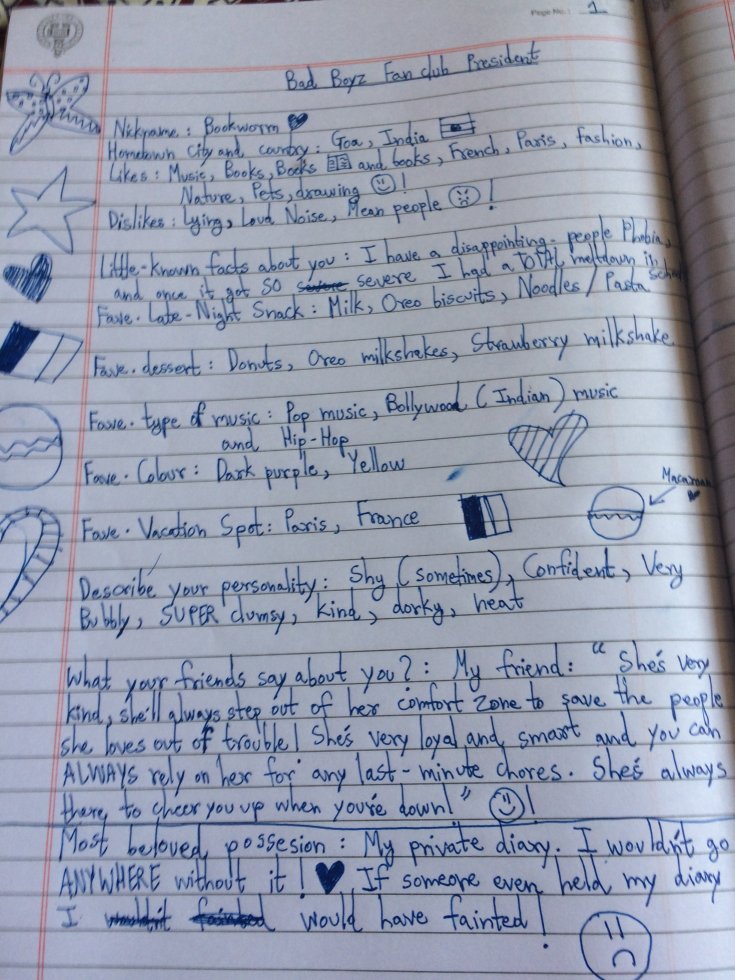 Page No.: 1
Bad Boyz Fan club President
Nickname : Bookworm
Hometown City and country : Goa, India
Likes : Music, Books, Books and books, French, Paris, fashion,
Nature, Pets, drawing !
Dislikes : Lying, Loud Noise, Mean people !
Little-known facts about you : I have a disappointing-people Phobia,
and once it got SO severe I had a TOTAL meltdown in school
Fave. Late-Night Snack : Milk, Oreo biscuits, Noodles / Pasta
Fave. dessert : Donuts, Oreo milkshakes, Strawberry milkshake
Fave. type of music : Pop music, Bollywood (Indian) music
and Hip-Hop
Fave. Colour : Dark purple, Yellow
Macaroon
Fave. Vacation Spot : Paris, France
Describe your personality : Shy (sometimes), Confident, Very
Bubbly, SUPER clumsy, kind, dorky, neat
What your friends say about you? : My friend : "She's very
kind, she'll always step out of her comfort zone to save the people
she loves out of trouble! She's very loyal and smart and you can
ALWAYS rely on her for any last-minute chores. She's always
there to cheer you up when you're down!" !
Most beloved possesion : My private diary. I wouldn't go
ANYWHERE without it ! If someone even held my diary
I would have fainted !